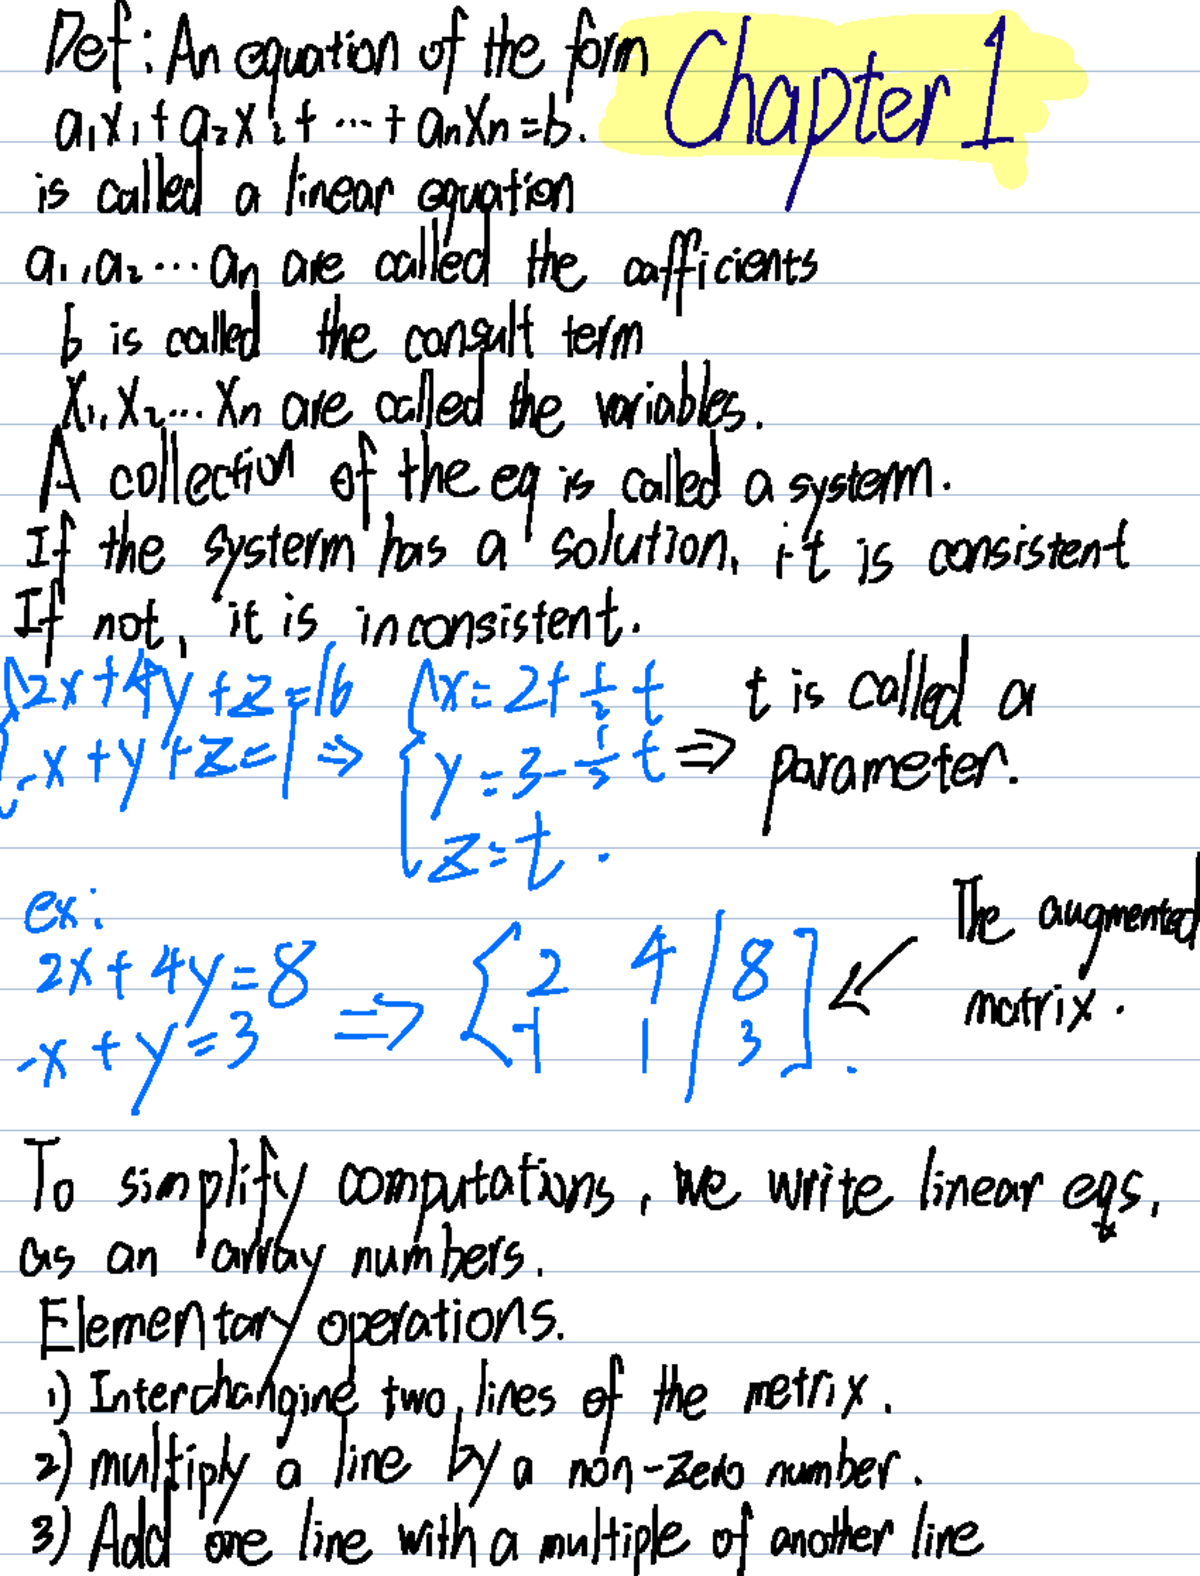 Def: An equation of the form
Chapter 1
a₁x₁ + a₂x₂ + ... + anxn = b.
is called a linear equation
a₁, a₂ ... an are called the oafficients
b is called the consult term
x₁, x₂ ... xn are called the variables.
A collection of the eq is called a systerm.
If the systerm has a solution, it is consistent
If not, it is inconsistent.
2x+4y+z=16
-x+y+z=1 ⇒
x=2+½t
y=3-½t ⇒
z=t.
t is called a
parameter.
ex:
2x+4y=8
-x+y=3 ⇒
[2 4 | 8
-1 1 | 3].
The augmented
matrix.
To simplify computations, we write linear eqs,
as an array numbers.
Elementary operations.
1) Interchangine two lines of the metrix.
2) multiply a line by a non-zero number.
3) Add one line with a multiple of another line